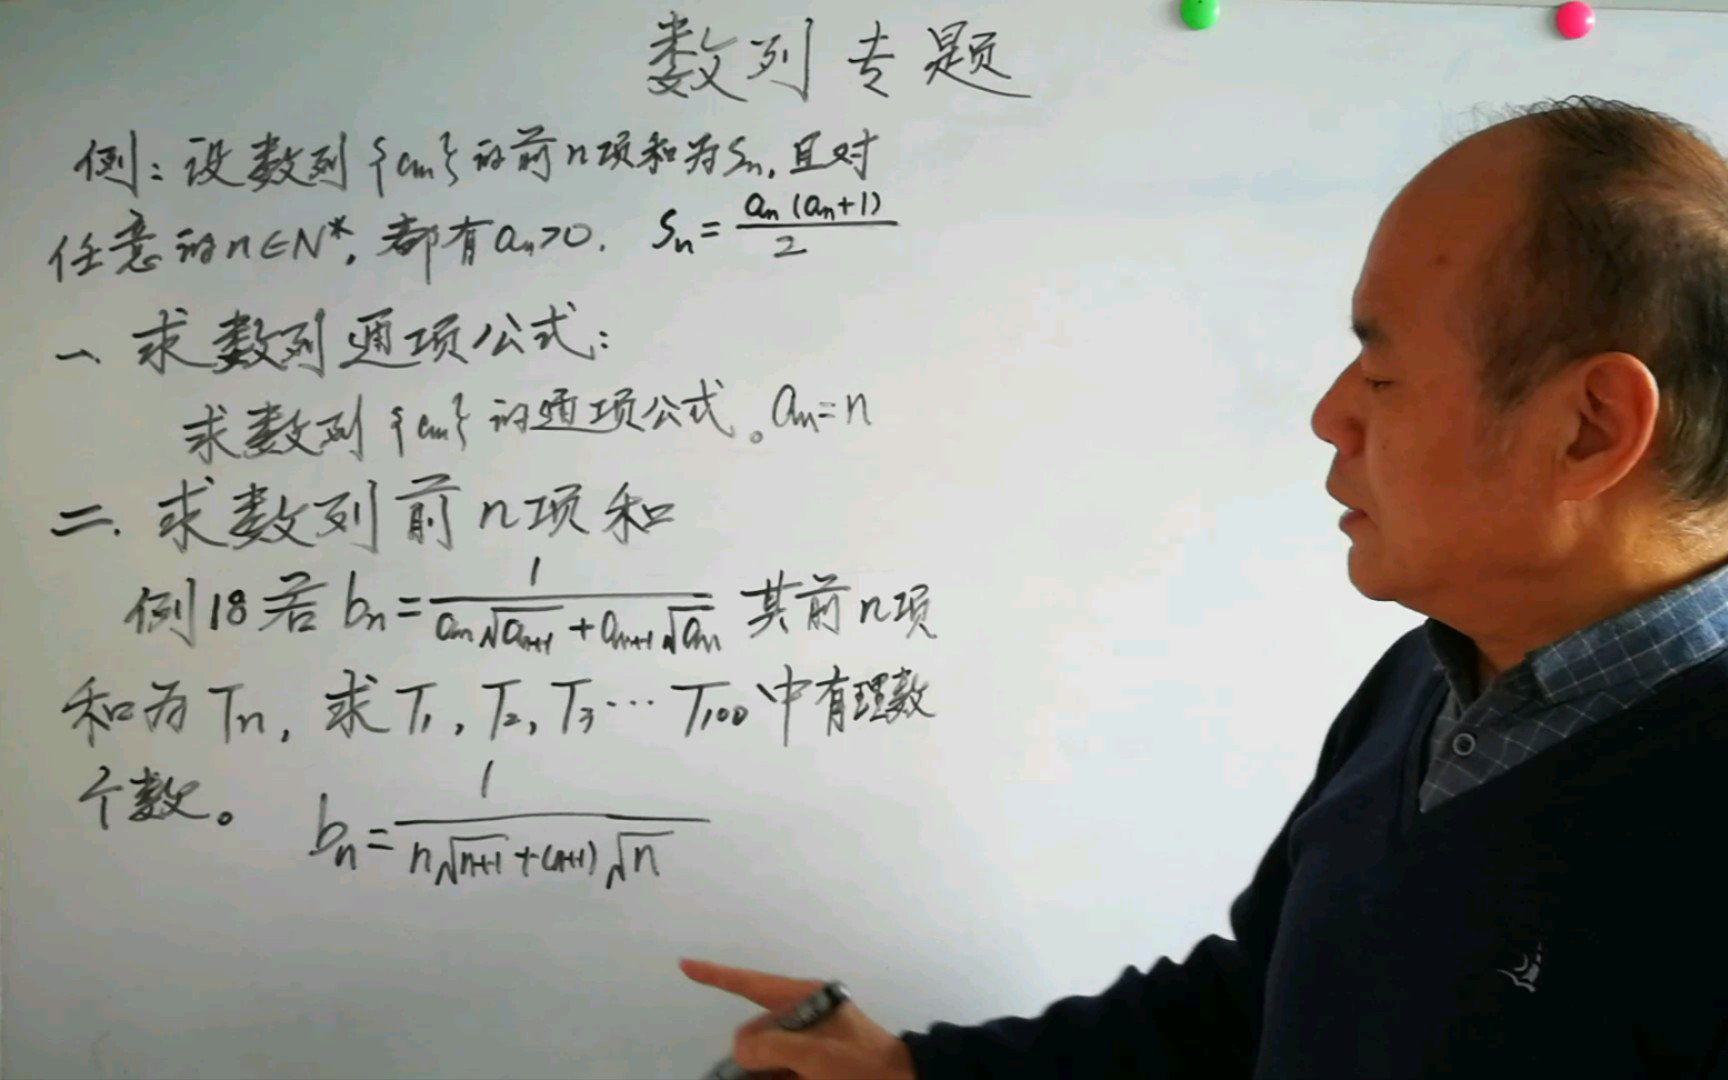 数列专题
例:设数列{an}的前n项和为Sn,且对
任意的n∈N*,都有an>0. Sn=an(an+1)/2
一、求数列通项公式:
求数列{an}的通项公式。an=n
二.求数列前n项和
例18若bn=1/(an√(an+1)+an+1√an) 其前n项
和为Tn,求T1,T2,T3…T100中有理数
个数。 bn=1/(n√(n+1)+(n+1)√n)